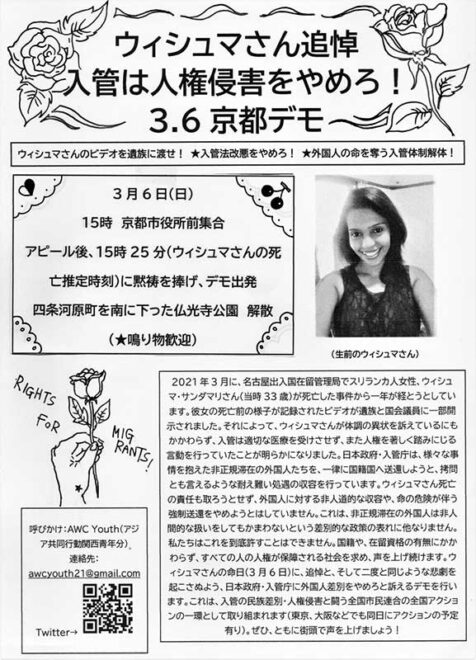 ウィシュマさん追悼
入管は人権侵害をやめろ！
3.6 京都デモ
ウィシュマさんのビデオを遺族に渡せ！ ★入管法改悪をやめろ！ ★外国人の命を奪う入管体制解体！
3月6日(日)
15時 京都市役所前集合
アピール後、15時25分(ウィシュマさんの死
亡推定時刻)に黙祷を捧げ、デモ出発
四条河原町を南に下った仏光寺公園 解散
(★鳴り物歓迎)
(生前のウィシュマさん)
RIGHTS
FOR
MIG
RANTS!
呼びかけ:AWC Youth(アジ
ア共同行動関西青年分)
連絡先:
awcyouth21@gmail.com
Twitter→
2021年3月に、名古屋出入国在留管理局でスリランカ人女性、ウィシュ
マ・サンダマリさん(当時33歳)が死亡した事件から一年が経とうとしてい
ます。彼女の死亡前の様子が記録されたビデオが遺族と国会議員に一部開
示されました。それによって、ウィシュマさんが体調の異状を訴えているにも
かかわらず、入管は適切な医療を受けさせず、また人権を著しく踏みにじる
言動を行っていたことが明らかになりました。日本政府・入管庁は、様々な事
情を抱えた非正規滞在の外国人たちを、一律に国籍国へ送還しようと、拷問
とも言えるような耐え難い処遇の収容を行っています。ウィシュマさん死亡
の責任も取ろうとせず、外国人に対する非人道的な収容や、命の危険が伴う
強制送還をやめようとはしていません。これは、非正規滞在の外国人は非人
間的な扱いをしてもかまわないという差別的な政策の表れに他なりません。
私たちはこれを到底許すことはできません。国籍や、在留資格の有無にかか
わらず、すべての人の人権が保障される社会を求め、声を上げ続けます。ウ
ィシュマさんの命日(3月6日)に、追悼と、そして二度と同じような悲劇を
起こさぬよう、日本政府・入管庁に外国人差別をやめろと訴えるデモを行い
ます。これは、入管の民族差別・人権侵害と闘う全国市民連合の全国アクショ
ンの一環として取り組まれます(東京、大阪などでも同日にアクションの予定
有り)。ぜひ、ともに街頭で声を上げましょう！